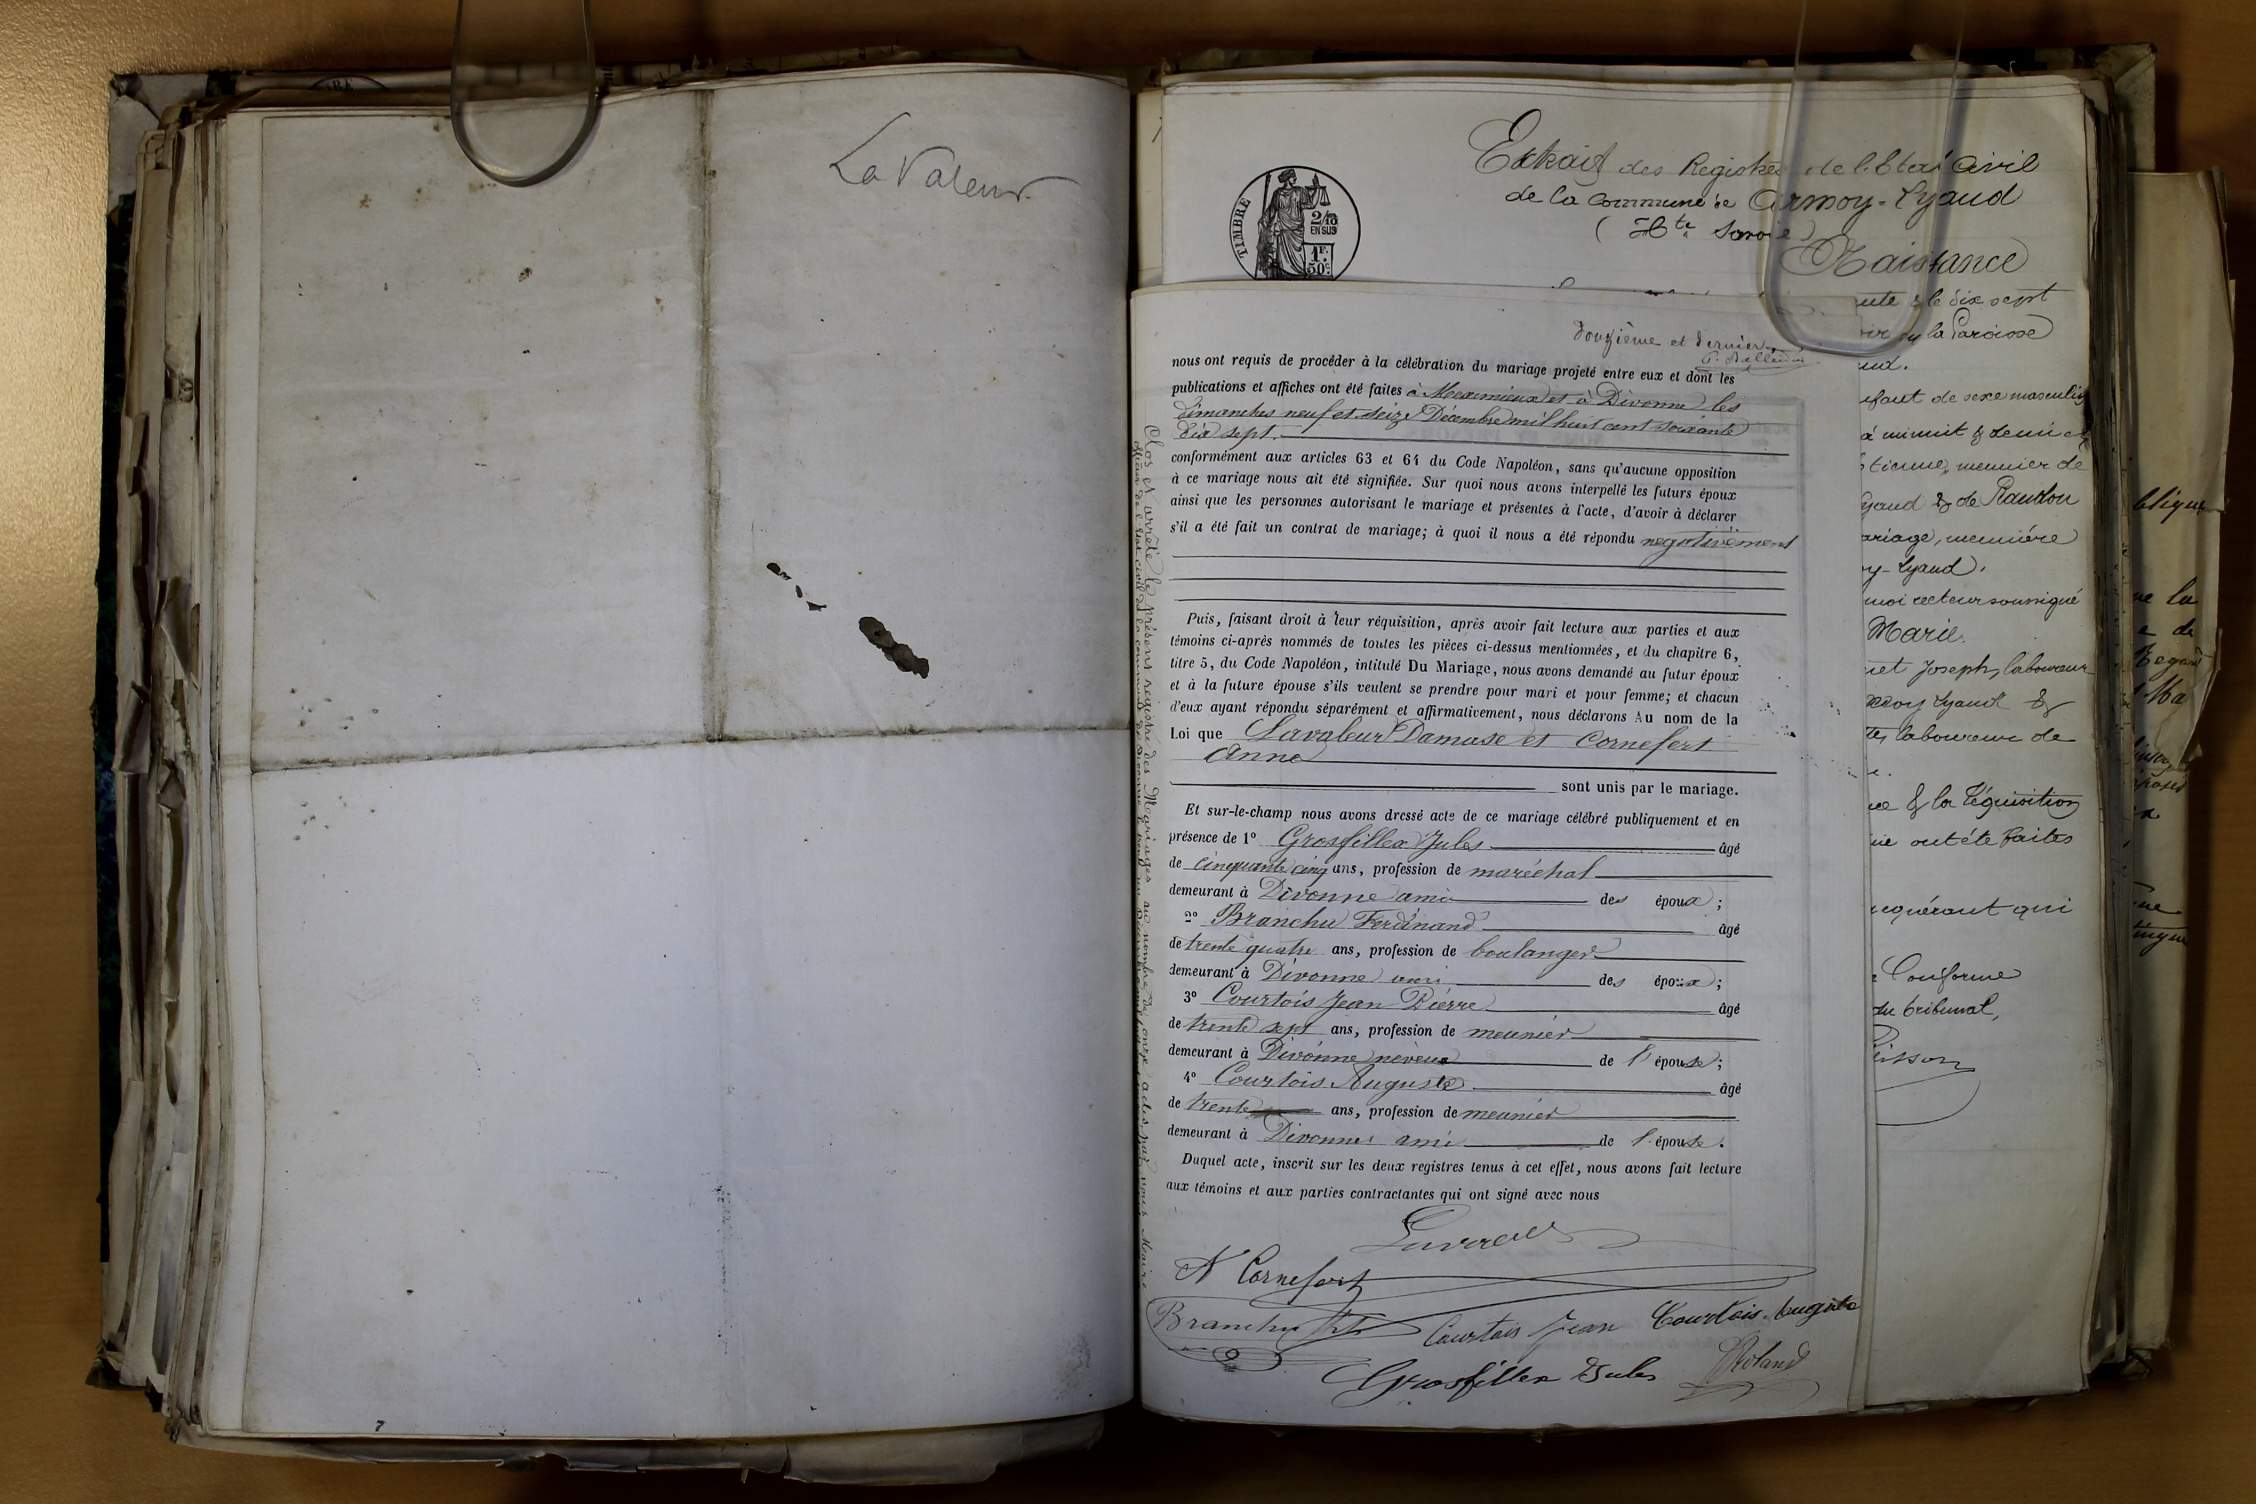 La Valeur
Extrait des Registres de l'Etat Civil
de la Commune de Armoy-Lyaud
(Hte Savoie)
Naissance
TIMBRE
2/10
EN SUS
1F.
50c
le dix sept
la Paroisse
de sexe masculin
à minuit & demi
meunier de
& de
meunière
Lyaud.
moi recteur soussigné
Marie
Joseph, laboureur
Lyaud &
laboureur de
& la réquisition
ont été faites
requérant qui
Conforme
du tribunal,
douzième et dernier
nous ont requis de procéder à la célébration du mariage projeté entre eux et dont les
publications et affiches ont été faites à Meximieux et à Divonne les
dimanches neuf et seize Décembre mil huit cent soixante
dix sept.
conformément aux articles 63 et 64 du Code Napoléon, sans qu'aucune opposition
à ce mariage nous ait été signifiée. Sur quoi nous avons interpellé les futurs époux
ainsi que les personnes autorisant le mariage et présentes à l'acte, d'avoir à déclarer
s'il a été fait un contrat de mariage; à quoi il nous a été répondu negativement
Puis, faisant droit à leur réquisition, après avoir fait lecture aux parties et aux
témoins ci-après nommés de toutes les pièces ci-dessus mentionnées, et du chapitre 6,
titre 5, du Code Napoléon, intitulé Du Mariage, nous avons demandé au futur époux
et à la future épouse s'ils veulent se prendre pour mari et pour femme; et chacun
d'eux ayant répondu séparément et affirmativement, nous déclarons Au nom de la
Loi que Lavaleur Damase et Cornefert
Anne
sont unis par le mariage.
Et sur-le-champ nous avons dressé acte de ce mariage célébré publiquement et en
présence de 1° Grosfillex Jules âgé
de cinquante cinq ans, profession de maréchal
demeurant à Divonne ami des époux;
2° Branchu Ferdinand âgé
de trente quatre ans, profession de boulanger
demeurant à Divonne ami des époux;
3° Courtois Jean Pierre âgé
de trente sept ans, profession de meunier
demeurant à Divonne neveu de l'épouse;
4° Courtois Auguste âgé
de trente ans, profession de meunier
demeurant à Divonne ami de l'épouse.
Duquel acte, inscrit sur les deux registres tenus à cet effet, nous avons fait lecture
aux témoins et aux parties contractantes qui ont signé avec nous
Cornefert
Branchu
Courtois Jean
Courtois Auguste
Grosfillex Jules
Roland
Clos et arrêté le présent registre des Mariages au nombre de onze actes par nous Maire
Officier de l'Etat civil de la commune de Divonne